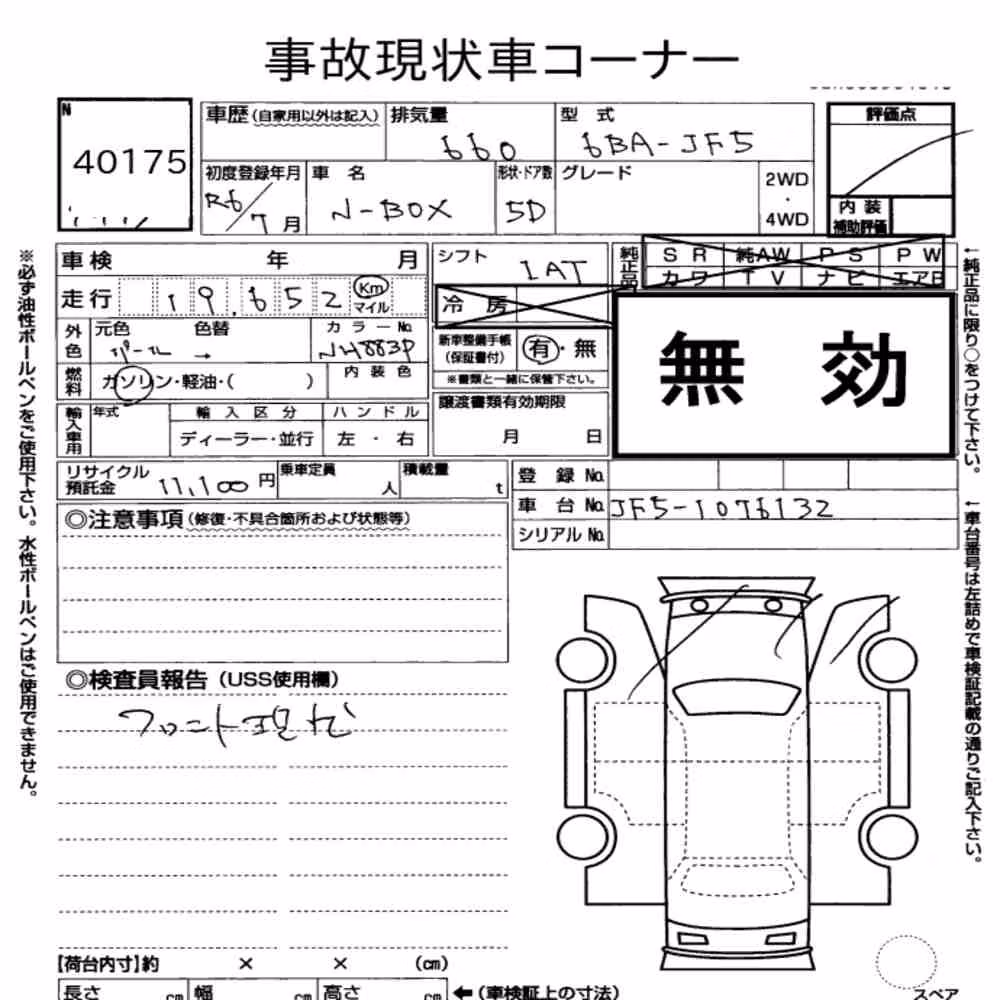 事故現状車コーナー
N
40175
車歴(自家用以外は記入)
排気量
660
型 式
6BA-JF5
評価点
初度登録年月
R6/7月
車 名
N-BOX
形状・ドア数
5D
グレード
2WD
・
4WD
内 装
補助評価
車検 年 月
シフト
IAT
純正品
SR 純AW PS PW
カワ TV ナビ エアB
走行 19,652 Km マイル
冷 房
無 効
外色
元色 色替
パール →
カラーNo.
NH883P
新車整備手帳
(保証書付)
有・無
※書類と一緒に保管下さい。
燃料
ガソリン・軽油・( )
内 装 色
輸入車用
年式
輸 入 区 分
ハ ン ド ル
ディーラー・並行
左 ・ 右
譲渡書類有効期限
月 日
リサイクル
預託金
11,100円
乗車定員
人
積載量
t
登 録 No.
車 台 No. JF5-1076132
シリアル No.
◎注意事項(修復・不具合箇所および状態等)
◎検査員報告(USS使用欄)
フロント現状
※必ず油性ボールペンをご使用下さい。水性ボールペンはご使用できません。
←純正品に限り○をつけて下さい。
←車台番号は左詰めで車検証記載の通りご記入下さい。
【荷台内寸】約 × × (cm)
長さ cm 幅 cm 高さ cm ←(車検証上の寸法)
スペア